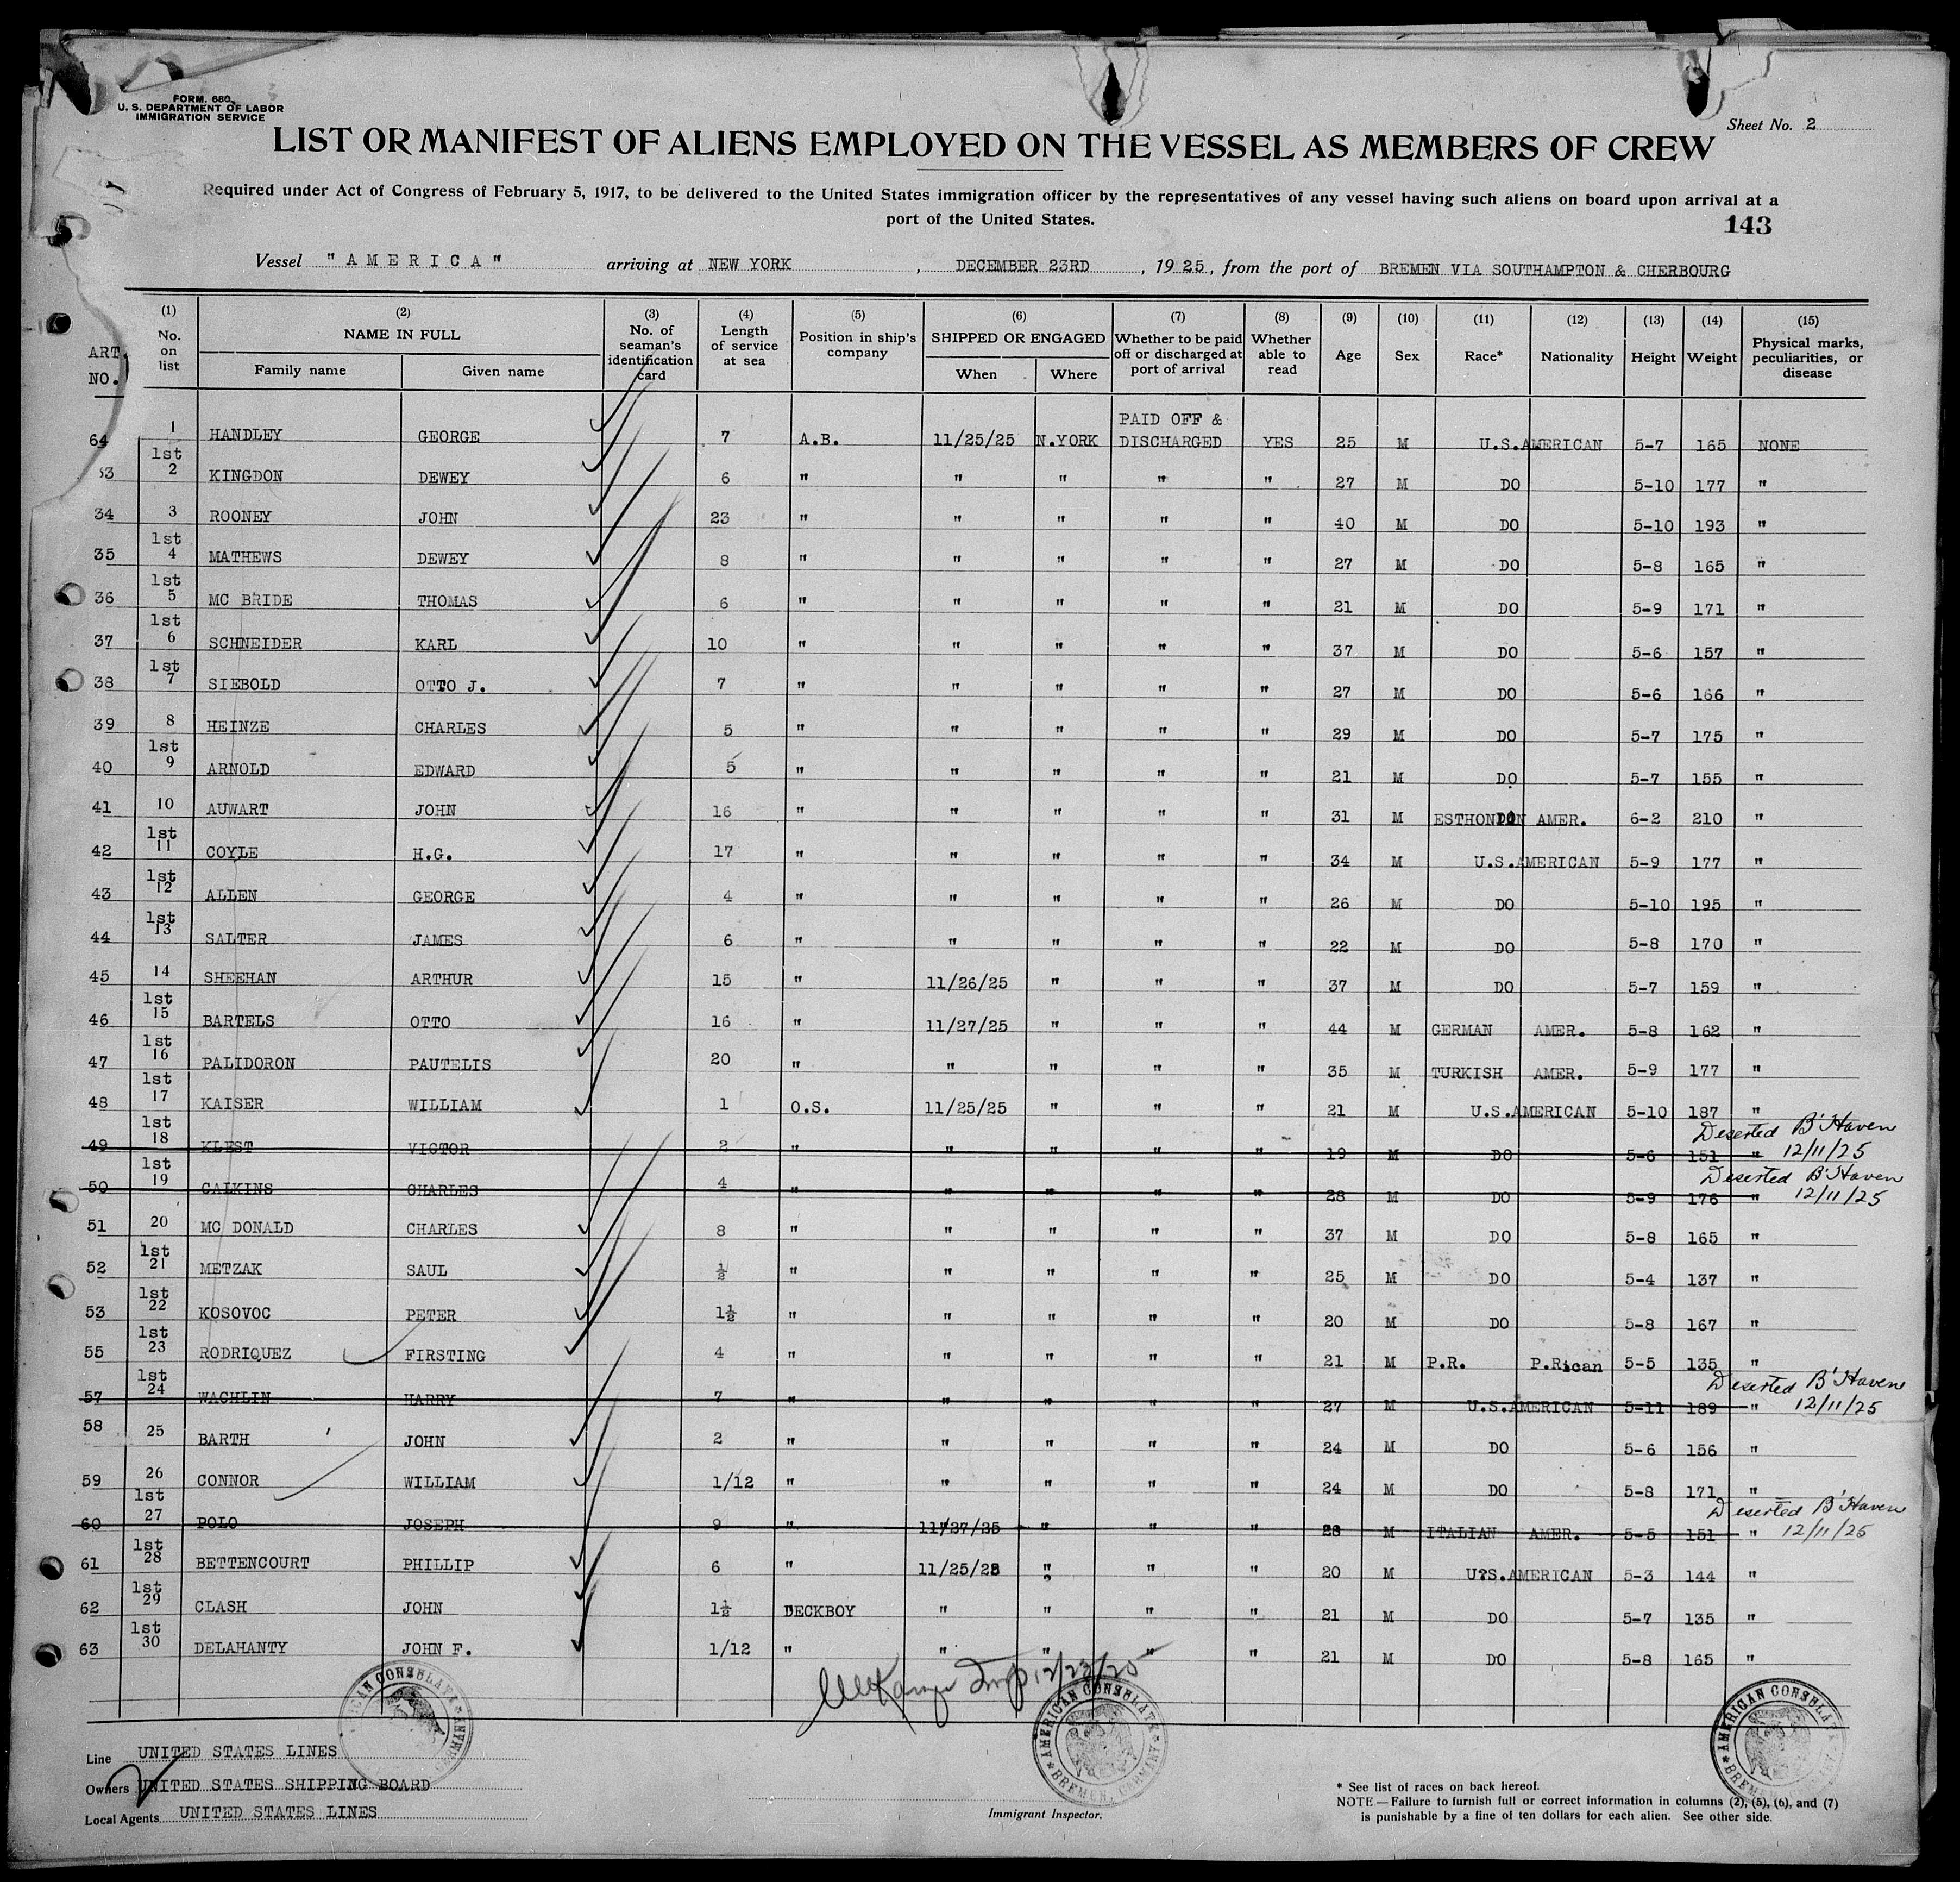 FORM. 680
U. S. DEPARTMENT OF LABOR
IMMIGRATION SERVICE
Sheet No. 2
LIST OR MANIFEST OF ALIENS EMPLOYED ON THE VESSEL AS MEMBERS OF CREW
Required under Act of Congress of February 5, 1917, to be delivered to the United States immigration officer by the representatives of any vessel having such aliens on board upon arrival at a
port of the United States.
143
Vessel "AMERICA" arriving at NEW YORK, DECEMBER 23RD, 1925, from the port of BREMEN VIA SOUTHAMPTON & CHERBOURG
ART. NO. (1) No. on list (2) NAME IN FULL Family name Given name (3) No. of seaman's identification card (4) Length of service at sea (5) Position in ship's company (6) SHIPPED OR ENGAGED When Where (7) Whether to be paid off or discharged at port of arrival (8) Whether able to read (9) Age (10) Sex (11) Race* (12) Nationality (13) Height (14) Weight (15) Physical marks, peculiarities, or disease
64 1 HANDLEY GEORGE 7 A.B. 11/25/25 N.YORK PAID OFF & DISCHARGED YES 25 M U.S.AMERICAN 5-7 165 NONE
33 1st 2 KINGDON DEWEY 6 " " " " " 27 M DO 5-10 177 "
34 3 ROONEY JOHN 23 " " " " " 40 M DO 5-10 193 "
35 1st 4 MATHEWS DEWEY 8 " " " " " 27 M DO 5-8 165 "
36 1st 5 MC BRIDE THOMAS 6 " " " " " 21 M DO 5-9 171 "
37 1st 6 SCHNEIDER KARL 10 " " " " " 37 M DO 5-6 157 "
38 1st 7 SIEBOLD OTTO J. 7 " " " " " 27 M DO 5-6 166 "
39 8 HEINZE CHARLES 5 " " " " " 29 M DO 5-7 175 "
40 1st 9 ARNOLD EDWARD 5 " " " " " 21 M DO 5-7 155 "
41 10 AUWART JOHN 16 " " " " " 31 M ESTHONIAN AMER. 6-2 210 "
42 1st 11 COYLE H.G. 17 " " " " " 34 M U.S.AMERICAN 5-9 177 "
43 1st 12 ALLEN GEORGE 4 " " " " " 26 M DO 5-10 195 "
44 1st 13 SALTER JAMES 6 " " " " " 22 M DO 5-8 170 "
45 14 SHEEHAN ARTHUR 15 " 11/26/25 " " " 37 M DO 5-7 159 "
46 1st 15 BARTELS OTTO 16 " 11/27/25 " " " 44 M GERMAN AMER. 5-8 162 "
47 1st 16 PALIDORON PAUTELIS 20 " " " " " 35 M TURKISH AMER. 5-9 177 "
48 1st 17 KAISER WILLIAM 1 O.S. 11/25/25 " " " 21 M U.S.AMERICAN 5-10 187 "
49 1st 18 KLEST VICTOR 2 " " " " " 19 M DO 5-6 151 " Deserted B'Haven 12/11/25
50 1st 19 CALKINS CHARLES 4 " " " " " 28 M DO 5-9 176 " Deserted B'Haven 12/11/25
51 20 MC DONALD CHARLES 8 " " " " " 37 M DO 5-8 165 "
52 1st 21 METZAK SAUL ½ " " " " " 25 M DO 5-4 137 "
53 1st 22 KOSOVOC PETER 1½ " " " " " 20 M DO 5-8 167 "
55 1st 23 RODRIQUEZ FIRSTING 4 " " " " " 21 M P.R. P.Rican 5-5 135 "
57 1st 24 WACHLIN HARRY 7 " " " " " 27 M U.S.AMERICAN 5-11 189 " Deserted B'Haven 12/11/25
58 25 BARTH JOHN 2 " " " " " 24 M DO 5-6 156 "
59 26 CONNOR WILLIAM 1/12 " " " " " 24 M DO 5-8 171 "
60 1st 27 POLO JOSEPH 9 " 11/27/25 " " " 28 M ITALIAN AMER. 5-5 151 " Deserted B'Haven 12/11/25
61 1st 28 BETTENCOURT PHILLIP 6 " 11/25/25 " " " 20 M U.S.AMERICAN 5-3 144 "
62 1st 29 CLASH JOHN 1½ DECKBOY " " " " 21 M DO 5-7 135 "
63 1st 30 DELAHANTY JOHN F. 1/12 " " " " " 21 M DO 5-8 165 "
Insp 12/23/25
AMERICAN CONSULATE
AMERICAN CONSULATE BREMEN, GERMANY
AMERICAN CONSULATE BREMEN
Line UNITED STATES LINES
Owners UNITED STATES SHIPPING BOARD
Local Agents UNITED STATES LINES
Immigrant Inspector.
* See list of races on back hereof.
NOTE — Failure to furnish full or correct information in columns (2), (5), (6), and (7)
is punishable by a fine of ten dollars for each alien. See other side.